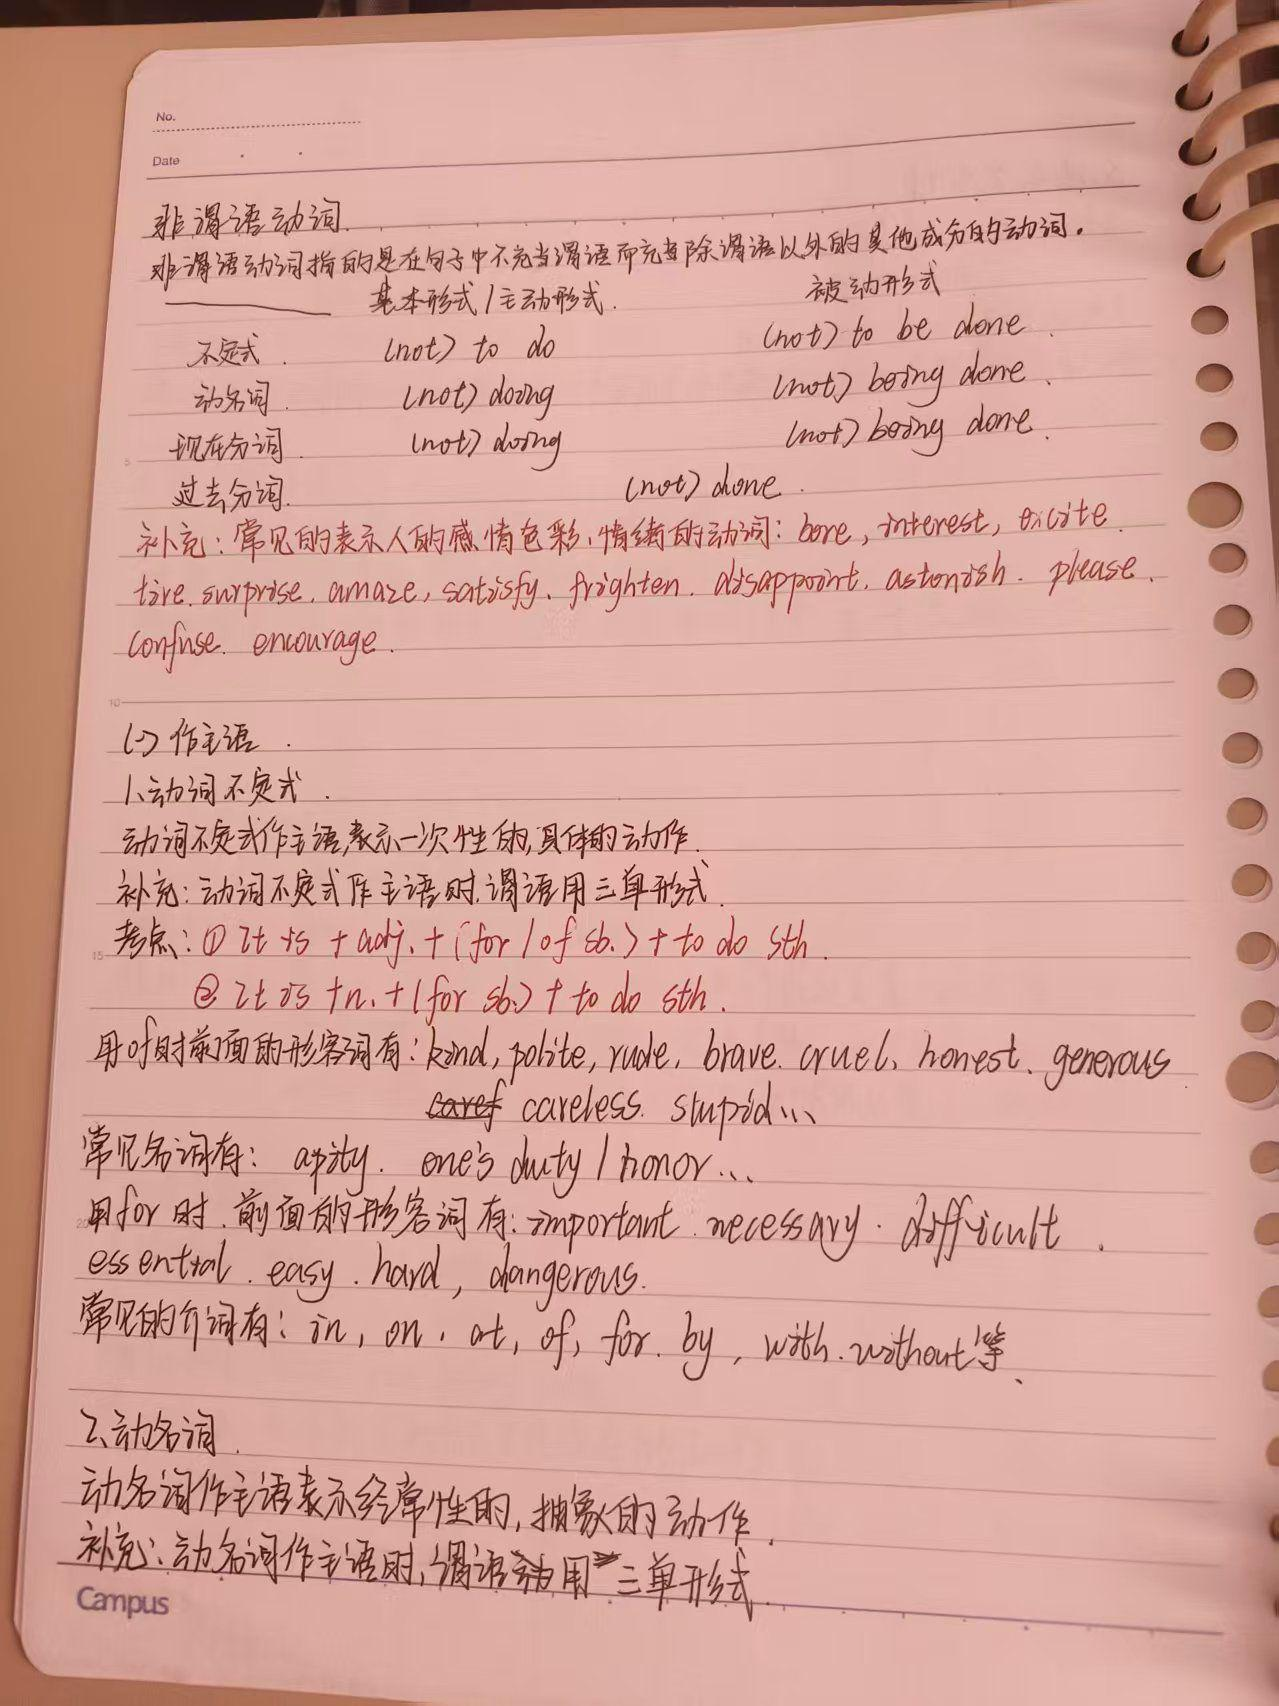 No.
Date
非谓语动词
非谓语动词指的是在句子中不充当谓语而充当除谓语以外的其他成分的动词.
基本形式/主动形式. 被动形式
不定式. (not) to do (not) to be done.
动名词. (not) doing (not) being done.
现在分词. (not) doing (not) being done.
5
过去分词. (not) done.
补充:常见的表示人的感情色彩、情绪的动词: bore, interest, excite.
tire. surprise. amaze, satisfy. frighten. disappoint. astonish. please.
confuse. encourage.
10
(一) 作主语.
1.动词不定式.
动词不定式作主语,表示一次性的,具体的动作.
补充:动词不定式作主语时.谓语用三单形式.
15
考点:① It is + adj. + (for / of sb.) + to do sth.
② It is +n. + (for sb.) + to do sth.
用of时前面的形容词有: kind, polite, rude, brave. cruel. honest. generous
caref careless. stupid...
常见名词有: a pity. one's duty / honor...
20
用for时.前面的形容词有: important. necessary. difficult.
essential. easy. hard, dangerous.
常见的介词有: in, on. at, of, for. by, with. without等.
2.动名词.
动名词作主语表示经常性的,抽象的动作.
补充:动名词作主语时,谓语动用三单形式.
Campus